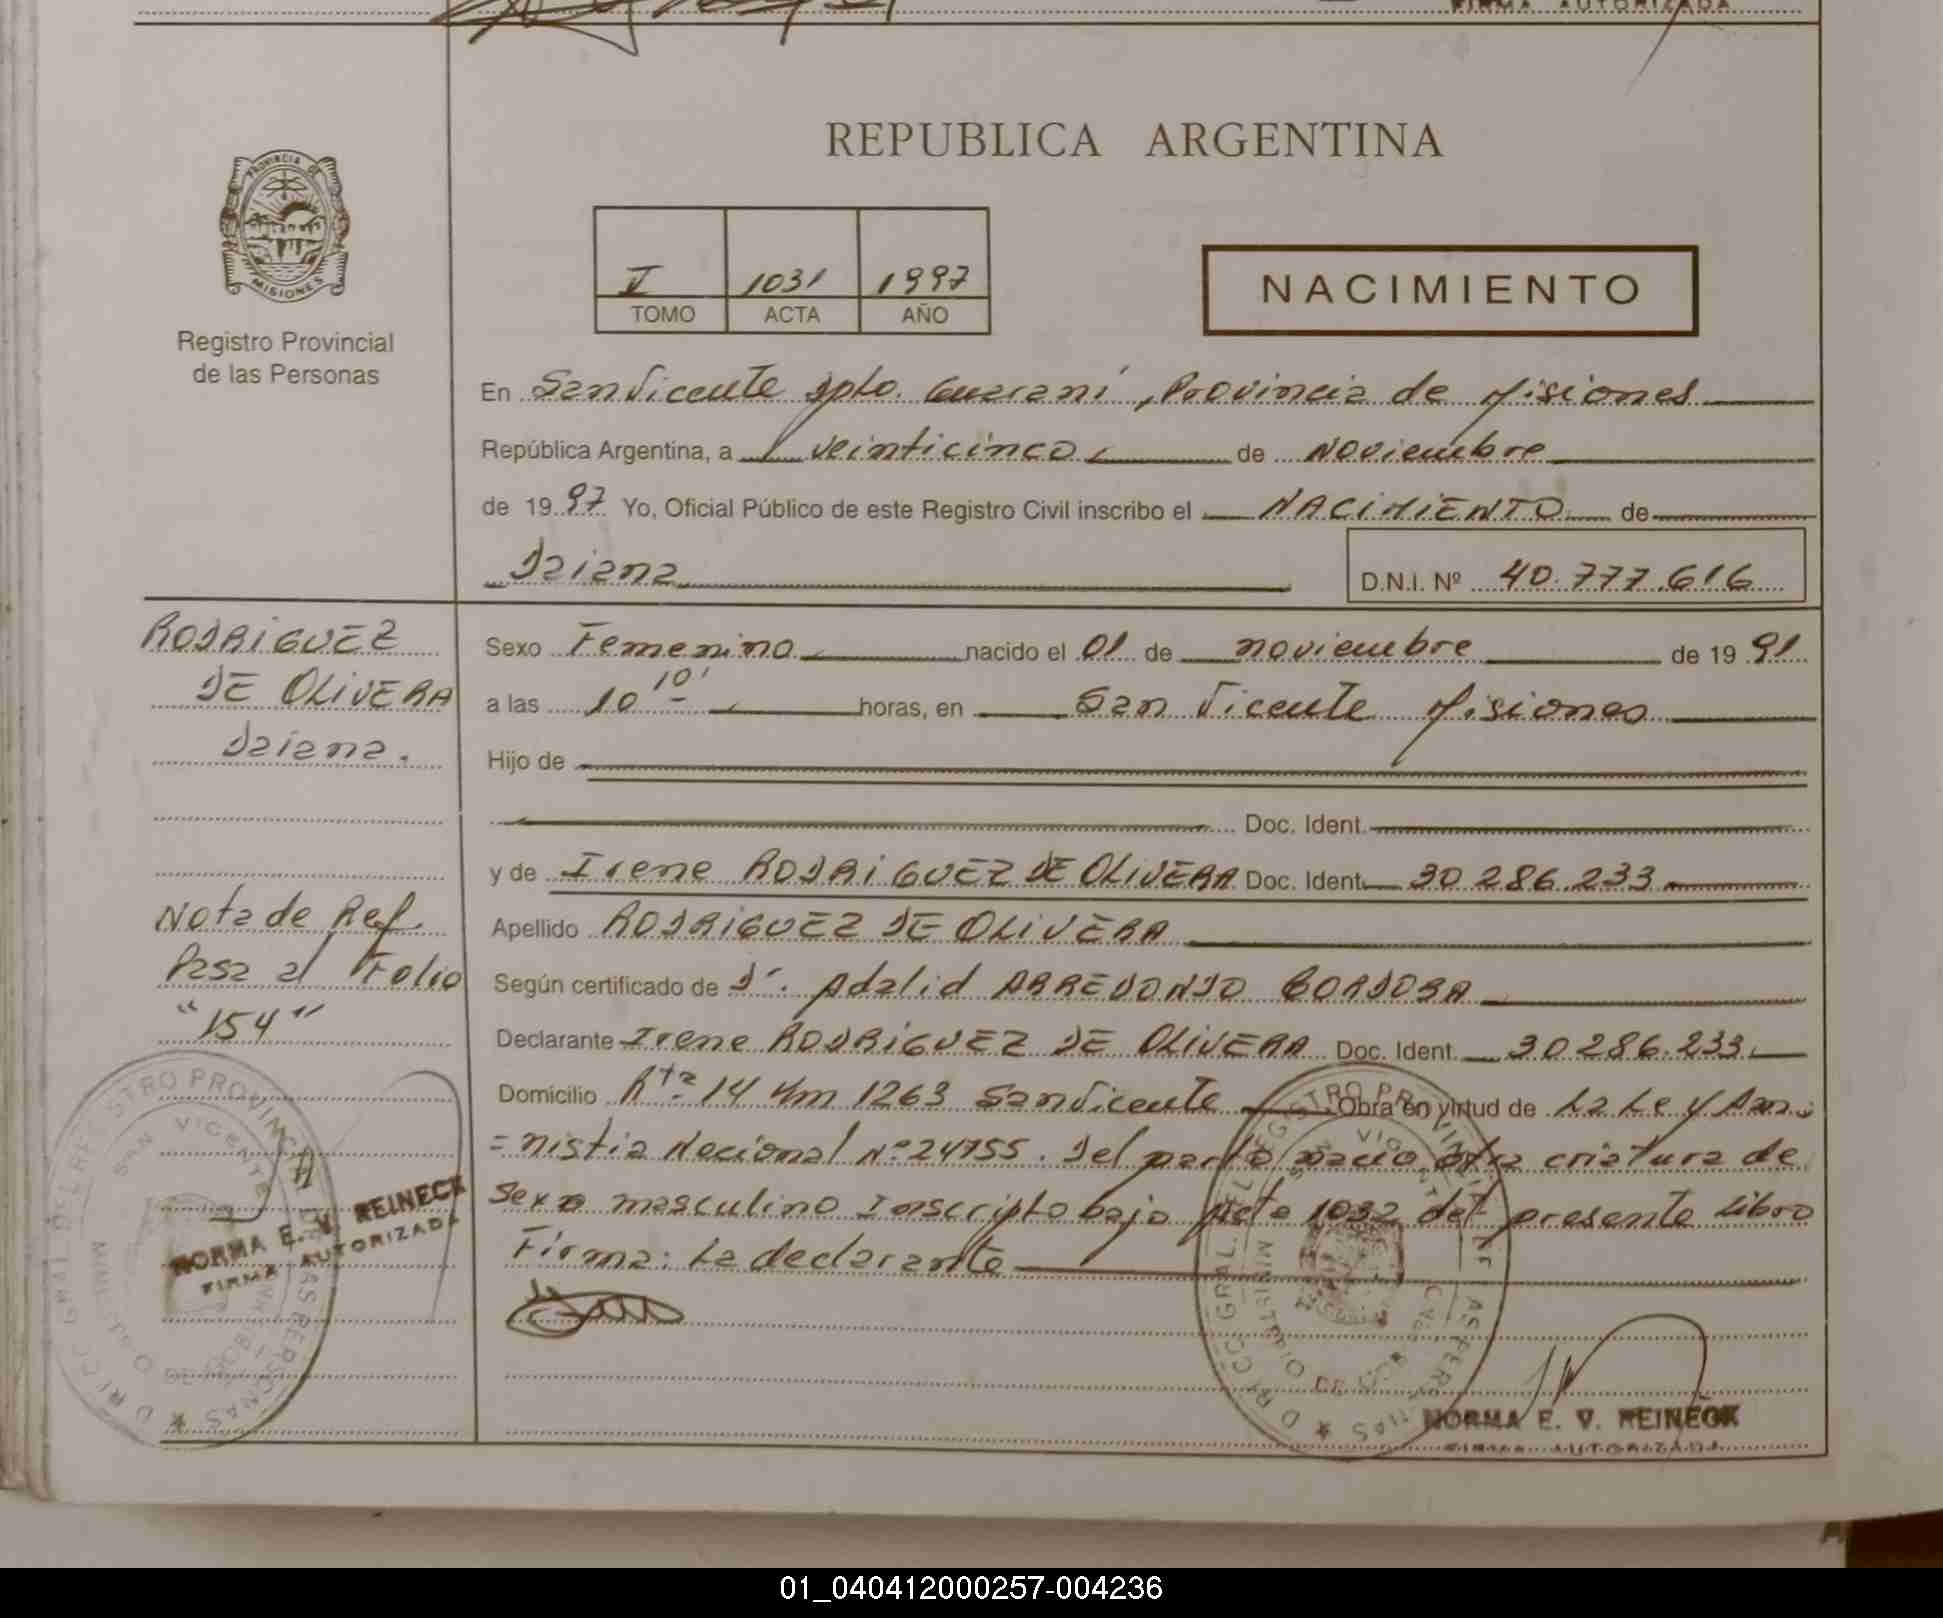 FIRMA AUTORIZADA
REPUBLICA ARGENTINA
PROVINCIA DE
MISIONES
Registro Provincial
de las Personas
V 1031 1997
TOMO ACTA AÑO
NACIMIENTO
En San Vicente Dpto. Guaraní, Provincia de Misiones
República Argentina, a veinticinco de Noviembre
de 1997 Yo, Oficial Público de este Registro Civil inscribo el NACIMIENTO de
Daiana D.N.I. Nº 40.777.616
RODRIGUEZ
DE OLIVERA
Daiana.
Sexo Femenino nacido el 01 de noviembre de 1991
a las 10 10' horas, en San Vicente Misiones
Hijo de
Doc. Ident.
y de Irene RODRIGUEZ DE OLIVERA Doc. Ident. 30.286.233
Apellido RODRIGUEZ DE OLIVERA
Según certificado de Dr. Adalid ARREDONDO CORDOBA
Declarante Irene RODRIGUEZ DE OLIVERA Doc. Ident. 30.286.233
Domicilio Rta 14 Km 1263 San Vicente Obra en virtud de La Ley Am-
=nistia Nacional Nº 24755. Del parto nacio otra criatura de
sexo masculino Inscripto bajo Acta 1032 del presente Libro
Firma: La declarante
Nota de Ref.
Pasa al Folio
"154"
NORMA E. V. REINECK
FIRMA AUTORIZADA
NORMA E. V. REINECK
FIRMA AUTORIZADA
01_040412000257-004236